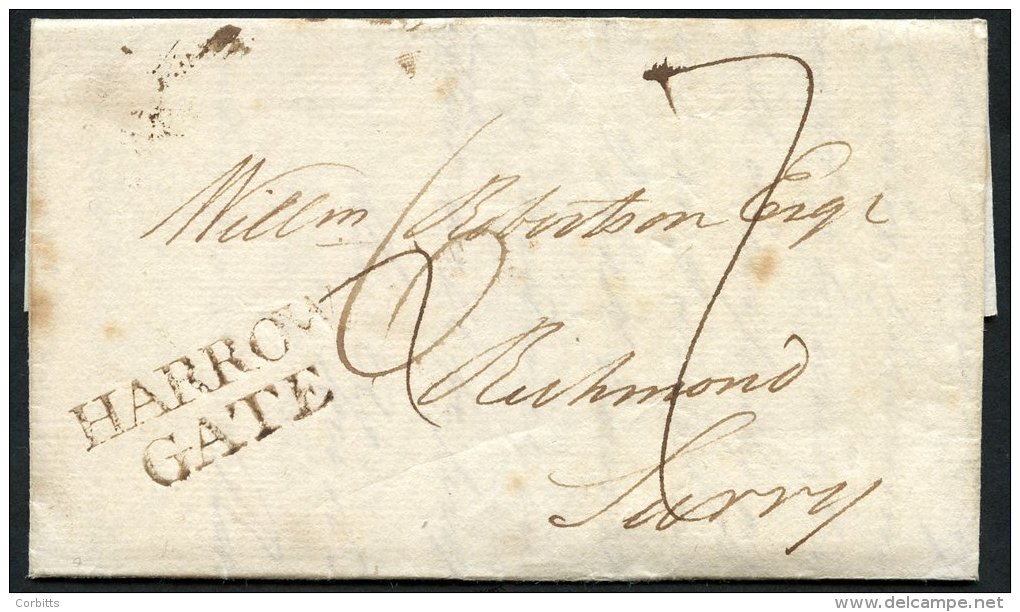 Willm Robertson Esqr
Richmond
Surry
HARROW
GATE
7
Corbitts
delcampe.net